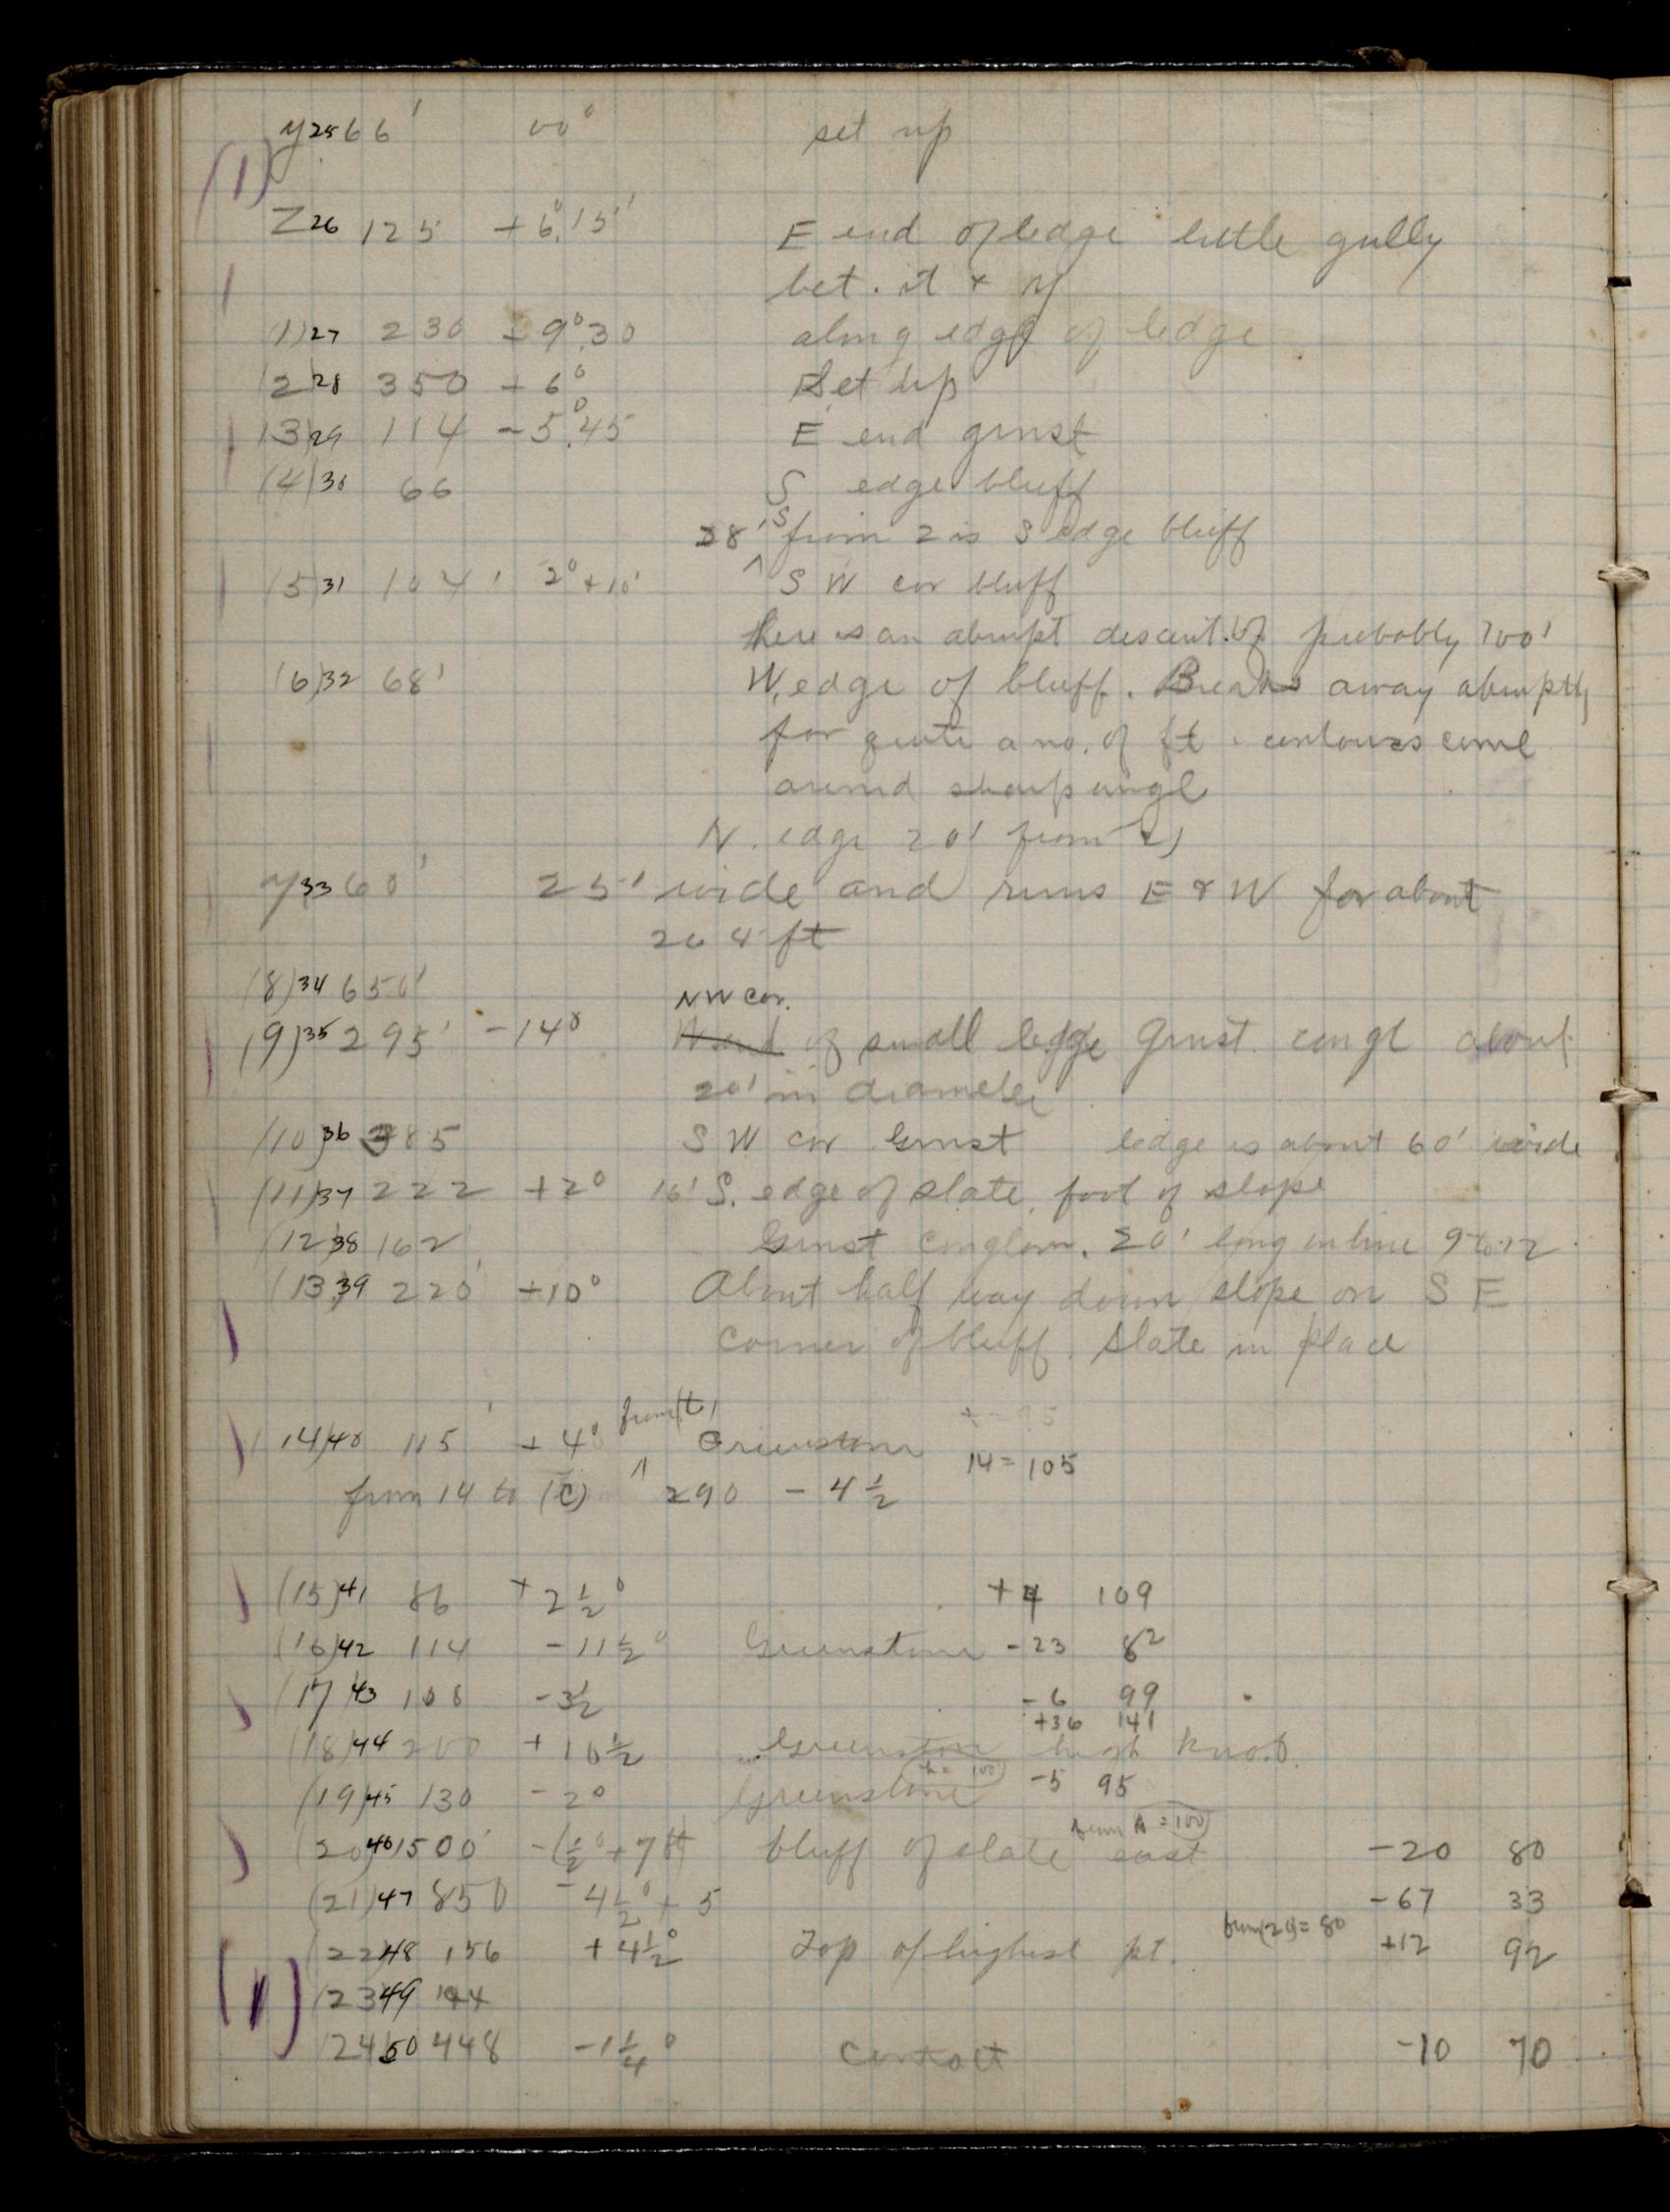 y 25 66' 00° set up
(1)
Z 26 125 +6°.15' E end of ledge little gully
bet. it & y
(1) 27 230 +9°.30 along edge of ledge
(2) 28 350 +6° Set up
(3) 29 114 -5°.45 E end grnst
(4) 30 66 S edge bluff
28' S from 2 is S edge bluff
(5) 31 104' 2° + 10' S W cor bluff
there is an abrupt descent of probably 100'
(6) 32 68' W. edge of bluff. Breaks away abruptly
for quite a no. of ft. contours come
around sharp angle
N. edge 20' from 2)
7) 33 60' 25' wide and runs E & W for about
264 ft
(8) 34 650'
NW cor.
(9) 35 295' -14° of small ledge Grnst. congl about
20' in diameter
(10) 36 385 S W cor Grnst ledge is about 60' wide
(11) 37 222 +2° 16' S. edge of slate, foot of slope
(12) 38 162 Grnst conglom. 20' long in line 9 to 12.
(13) 39 220' +10° About half way down slope on S E
corner of bluff. Slate in place
from (t)
14) 40 115' +4° Greenstone
14 = 105
from 14 to (C) 290 - 4 1/2
(15) 41 86 +2 1/2° +4 109
(16) 42 114 -11 1/2° Greenstone -23 82
(17) 43 108 -3 1/2 -6 99
+36 141
(18) 44 200 +10 1/2 Greenstone high knob.
h = 100
(19) 45 130 -2° Greenstone -5 95
from A = 100
(20) 46 1500' -(1/2° + 7 ft bluff of slate east -20 80
(21) 47 850 -4 1/2° + 5 -67 33
from (20) = 80
(22) 48 156 +4 1/2° Top of highest pt. +12 92
(1)
(23) 49 144
(24) 50 448 -1 1/4° Contact -10 70